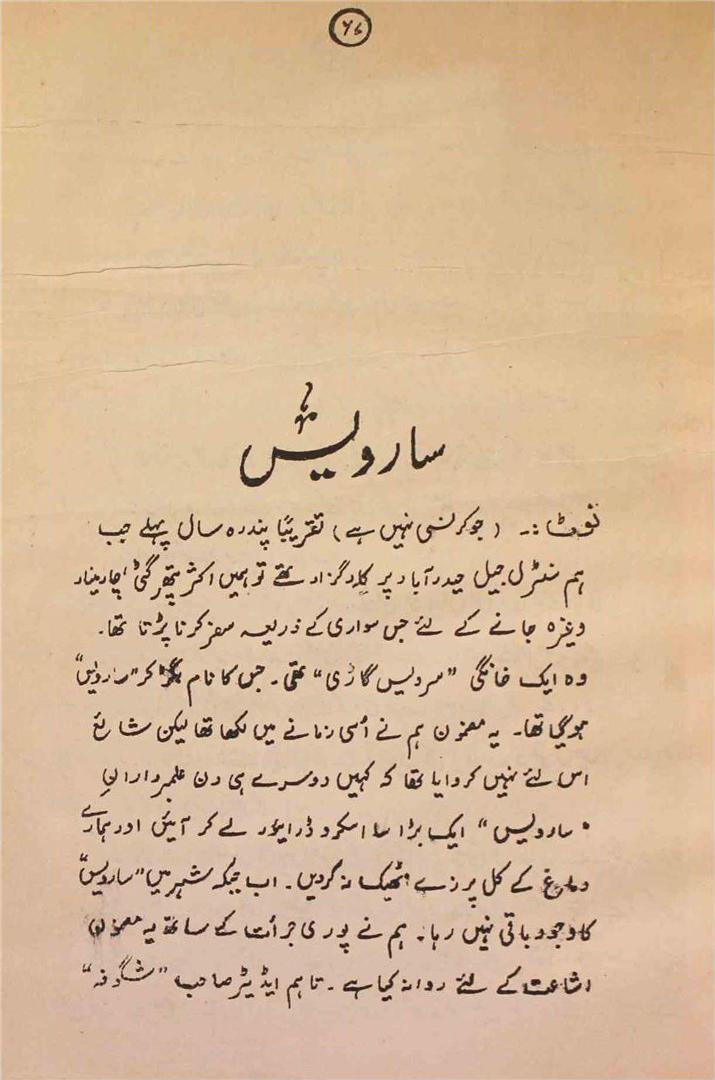 ۷۶
سارویس
نوٹ:۔ (جو کرنسی نہیں ہے) تقریباً پندرہ سال پہلے جب
ہم سنٹرل جیل حیدرآباد پر کارگزار تھے تو ہمیں اکثر پتھر گٹی، چارمینار
وغیرہ جانے کے لئے جس سواری کے ذریعہ سفر کرنا پڑتا تھا۔
وہ ایک خانگی "سرویس گاڑی" تھی۔ جس کا نام بگڑ کر "سارویس"
ہوگیا تھا۔ یہ مضمون ہم نے اُسی زمانے میں لکھا تھا لیکن شائع
اس لئے نہیں کروایا تھا کہ کہیں دوسرے ہی دن علمبردارانِ
"سارویس" ایک بڑا سا اسکرو ڈرایئور لے کر آئیں اور ہمارے
دماغ کے کل پرزے ٹھیک نہ کردیں۔ اب جبکہ شہر میں "سارویس"
کا وجود باقی نہیں رہا۔ ہم نے پوری جرأت کے ساتھ یہ مضمون
اشاعت کے لئے روانہ کیا ہے۔ تاہم ایڈیٹر صاحب "شگوفہ"